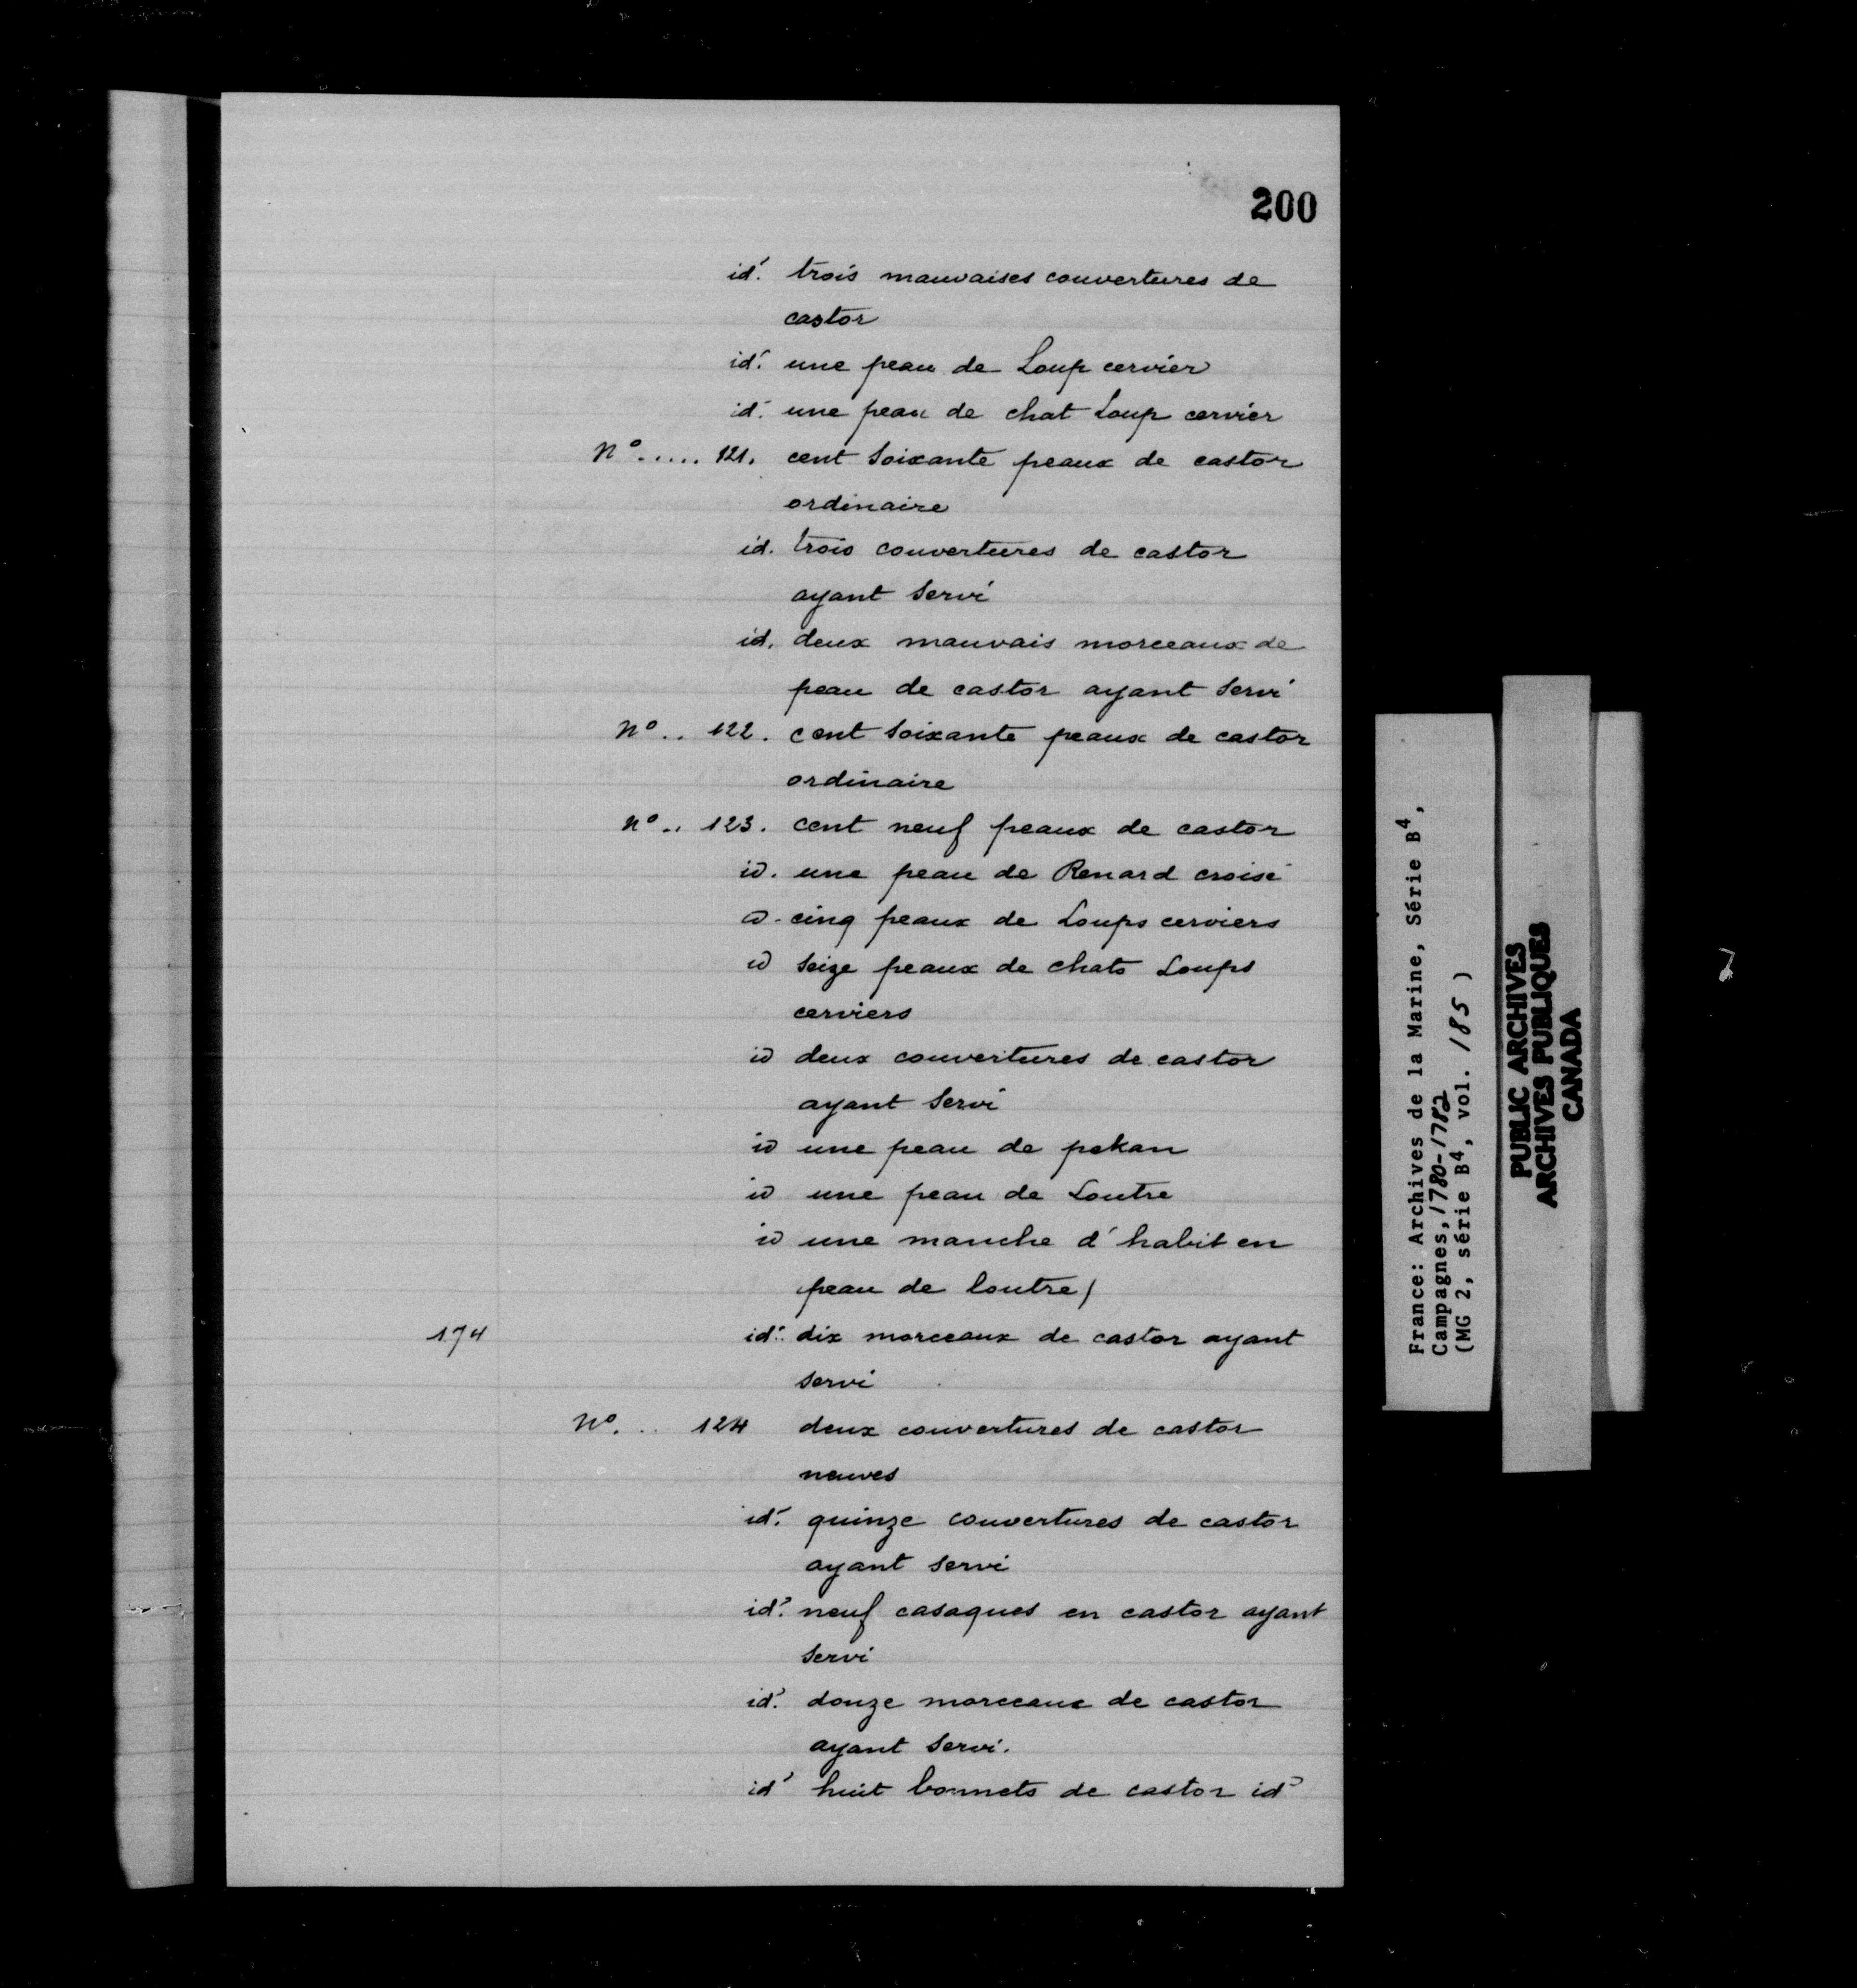 200
id. trois mauvaises couvertures de
castor
id. une peau de Loup cervier
id. une peau de chat Loup cervier
N°..... 121. cent soixante peaux de castor
ordinaire
id. trois couvertures de castor
ayant servi
id. deux mauvais morceaux de
peau de castor ayant servi
N°.. 122. cent soixante peaux de castor
ordinaire
N°.. 123. cent neuf peaux de castor
id. une peau de Renard croisé
id. cinq peaux de Loups cerviers
id seize peaux de chats Loups
cerviers
id deux couvertures de castor
ayant servi
id une peau de pekan
id une peau de Loutre
id une manche d'habit en
peau de loutre)
174 id. dix morceaux de castor ayant
servi
N°... 124 deux couvertures de castor
neuves
id. quinze couvertures de castor
ayant servi
id. neuf casaques en castor ayant
servi
id. douze morceaux de castor
ayant servi.
id huit bonnets de castor id
France: Archives de la Marine, Série B4,
Campagnes, 1780-1782
(MG 2, série B4, vol. 185)
PUBLIC ARCHIVES
ARCHIVES PUBLIQUES
CANADA